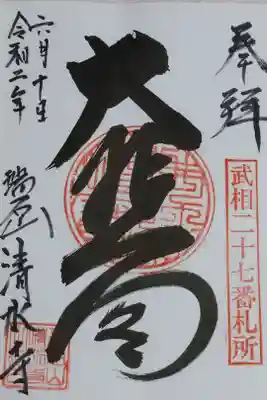 奉拝
武相二十七番札所
大悲閣
瑞石山清水寺
令和二年
六月十七日